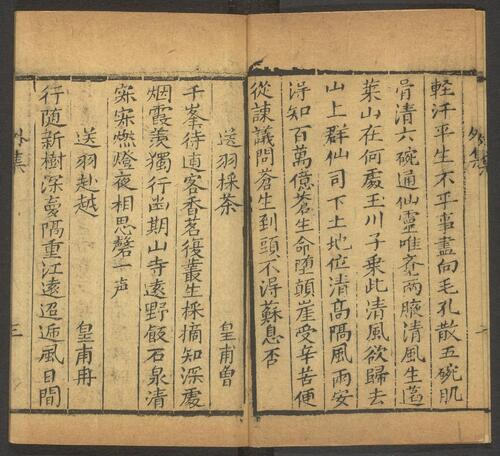 輕汗平生不平事盡向毛孔散五碗肌
骨清六碗通仙靈唯覺兩腋清風生蓬
萊山在何處玉川子乘此清風欲歸去
山上群仙司下土地位清高隔風雨安
得知百萬億蒼生命墮顛崖受辛苦便
從諫議問蒼生到頭不得蘇息否
送羽採茶 皇甫曾
千峯待逋客香茗復叢生採摘知深處
烟霞羨獨行幽期山寺遠野飯石泉清
寂寂燃燈夜相思磬一声
送羽赴越 皇甫冉
行隨新樹深夢隔重江遠迢遞風日間
外集
三